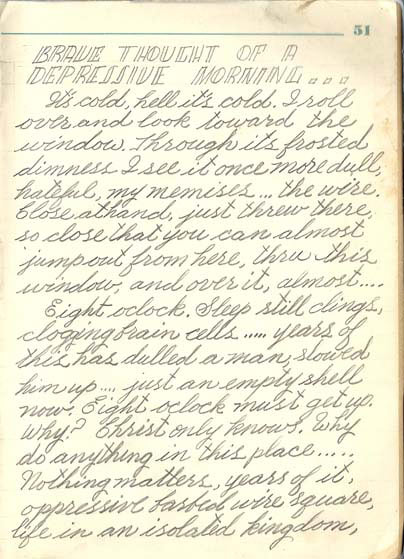 51
BRAVE THOUGHT OF A
DEPRESSIVE MORNING....
It's cold, hell it's cold. I roll
over and look toward the
window. Through its frosted
dimness I see it once more dull,
hateful, my memises... the wire.
Close at hand, just threw there,
so close that you can almost
jump out from here, thru this
window, and over it, almost....
Eight oclock. Sleep still clings,
cloging brain cells..... years of
this has dulled a man, slowed
him up.... just an empty shell
now. Eight oclock must get up.
Why? Christ only knows. Why
do anything in this place.....
Nothing matters, years of it,
oppressive barbed wire square,
life in an isolated kingdom,